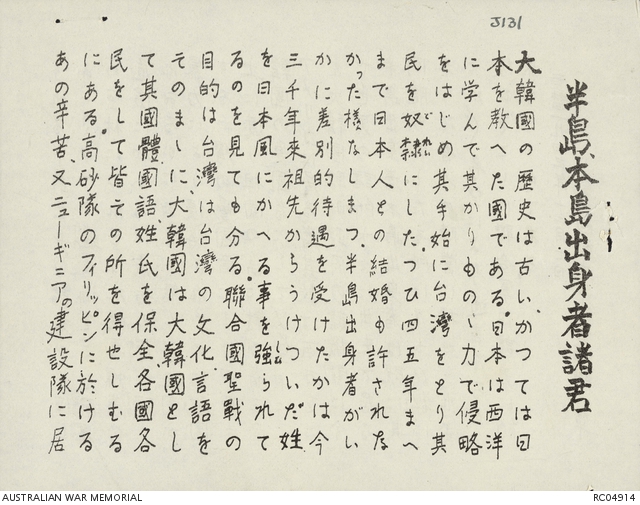 J131
半島、本島出身者諸君
大韓國の歴史は古い、かつては日
本を教へた國である。日本は西洋
に学んで其かりものゝ力で侵略
をはじめ其手始に台湾をとり其
民を奴隷にした。つひ四五年まへ
どれい
まで日本人との結婚も許されな
かった様なしまつ、半島出身者がい
かに差別的待遇を受けたかは今
三千年來祖先からうけついだ姓
を日本風にかへる事を強られて
しい
るのを見ても分る。聯合國聖戰の
目的は台湾は台湾の文化、言語を
そのまゝに、大韓國は大韓國とし
て其國體、國語、姓氏を保全各國各
民をして皆その所を得せしむる
にある。高砂隊のフィリッピンに於ける
あの辛苦、又ニューギニアの建設隊に居
AUSTRALIAN WAR MEMORIAL
RC04914